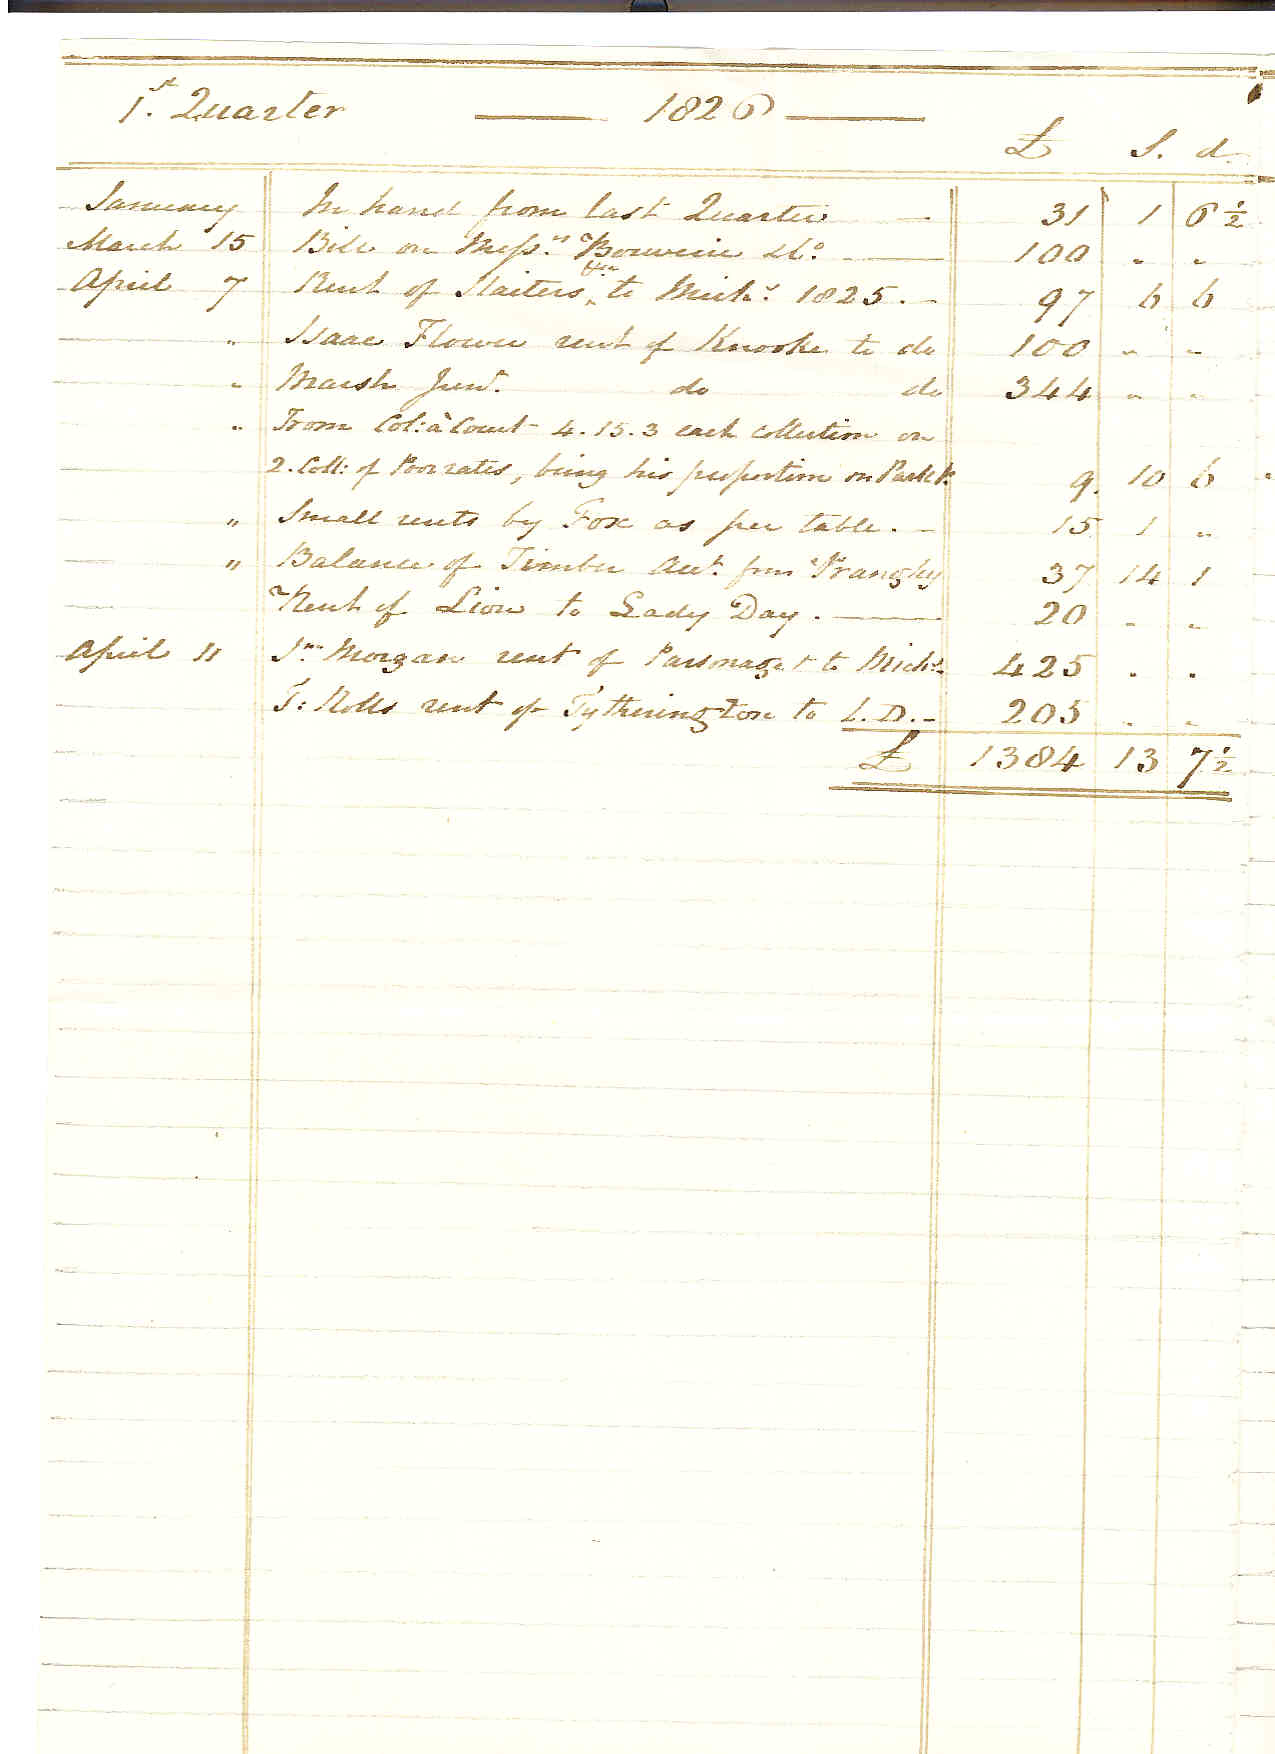 1st. Quarter — 1826 —
£ S. d.
January In hand from last Quarter — 31 1 6 ½
March 15 Bill on Messrs. Bouverie & Co. — 100 " "
April 7 Rent of Slaiters to Michs. 1825. — 97 6 6
" Isaac Flower rent of Knooke to do 100 " "
" Marsh Junr. do do 344 " "
" From Col: à Court 4.15.3 each collection on
2. Coll: of Poor rates, being his proportion on Park &c. 9. 10 6
" Small rents by Fox as per table. — 15 1 "
" Balance of Timber Acct. from Prangley 37 14 1
Rent of Lion to Lady Day. — 20 " "
April 11 Jno. Morgan rent of Parsonage to Michs. 425 " "
T: Rolls rent of Tytherington to L.D. — 205 " "
£ 1384 13 7 ½